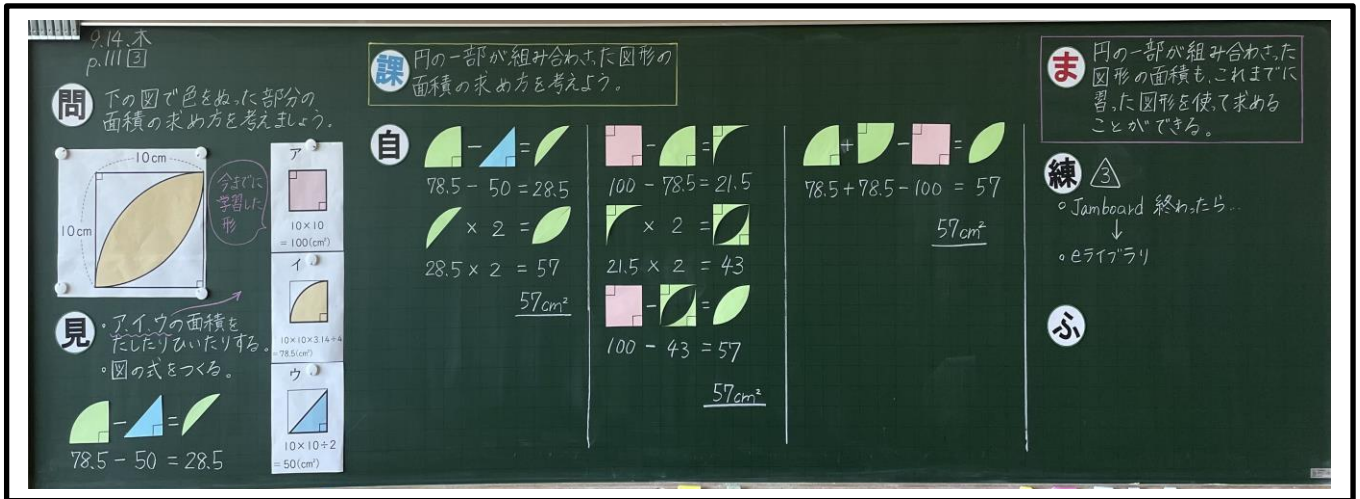 9.14.木
p.111 3
問
下の図で色をぬった部分の
面積の求め方を考えましょう。
10cm
10cm
今までに
学習した
形
ア
10×10
=100(cm²)
イ
10×10×3.14÷4
=78.5(cm²)
ウ
10×10÷2
=50(cm²)
見
・ア、イ、ウの面積を
たしたりひいたりする。
・図の式をつくる。
- =
78.5 - 50 = 28.5
課
円の一部が組み合わさった図形の
面積の求め方を考えよう。
自
- =
78.5 - 50 = 28.5
× 2 =
28.5 × 2 = 57
57cm²
- =
100 - 78.5 = 21.5
× 2 =
21.5 × 2 = 43
- =
100 - 43 = 57
57cm²
+ - =
78.5 + 78.5 - 100 = 57
57cm²
ま
円の一部が組み合わさった
図形の面積も、これまでに
習った図形を使って求める
ことができる。
練
3
○ Jamboard 終わったら…
↓
○ eライブラリ
ふ